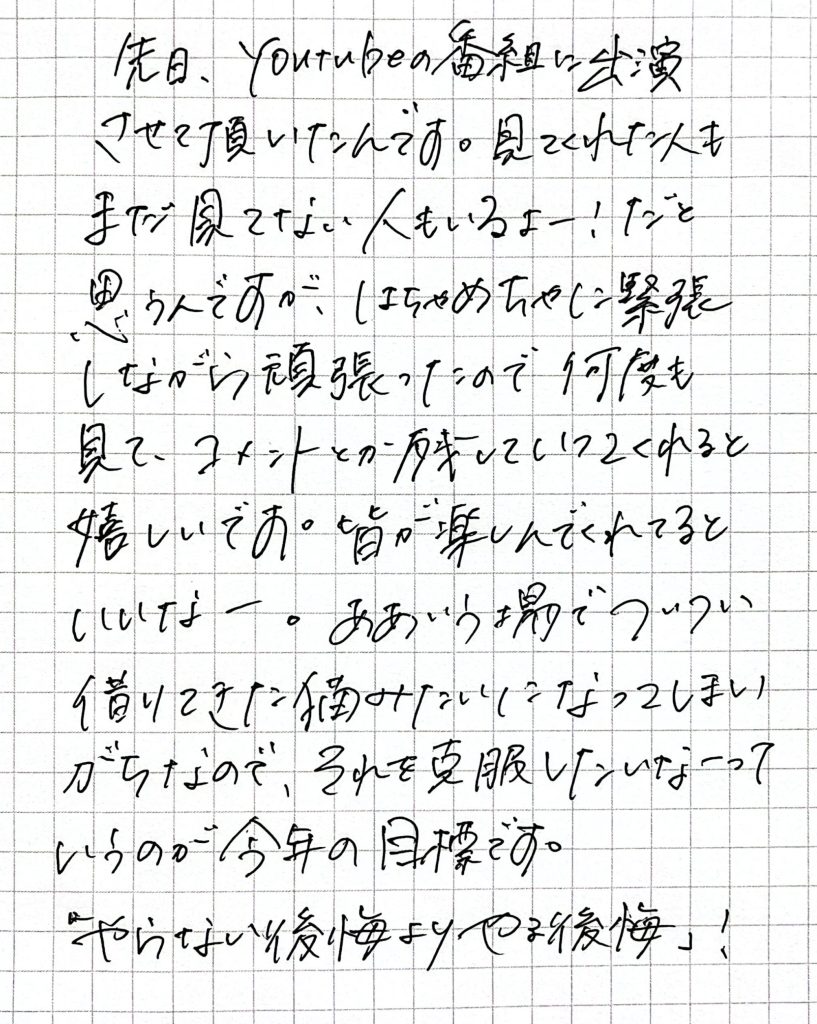 先日、Youtubeの番組に出演
させて頂いたんです。見てくれた人も
まだ見てない人もいるよー!だと
思うんですが、はちゃめちゃに緊張
しながら頑張ったので何度も
見て、コメントとか残していってくれると
嬉しいです。皆が楽しんでくれてると
いいなー。ああいう場でついつい
借りてきた猫みたいになってしまい
がちなので、それを克服したいなーって
いうのが今年の目標です。
「やらない後悔よりやる後悔」!